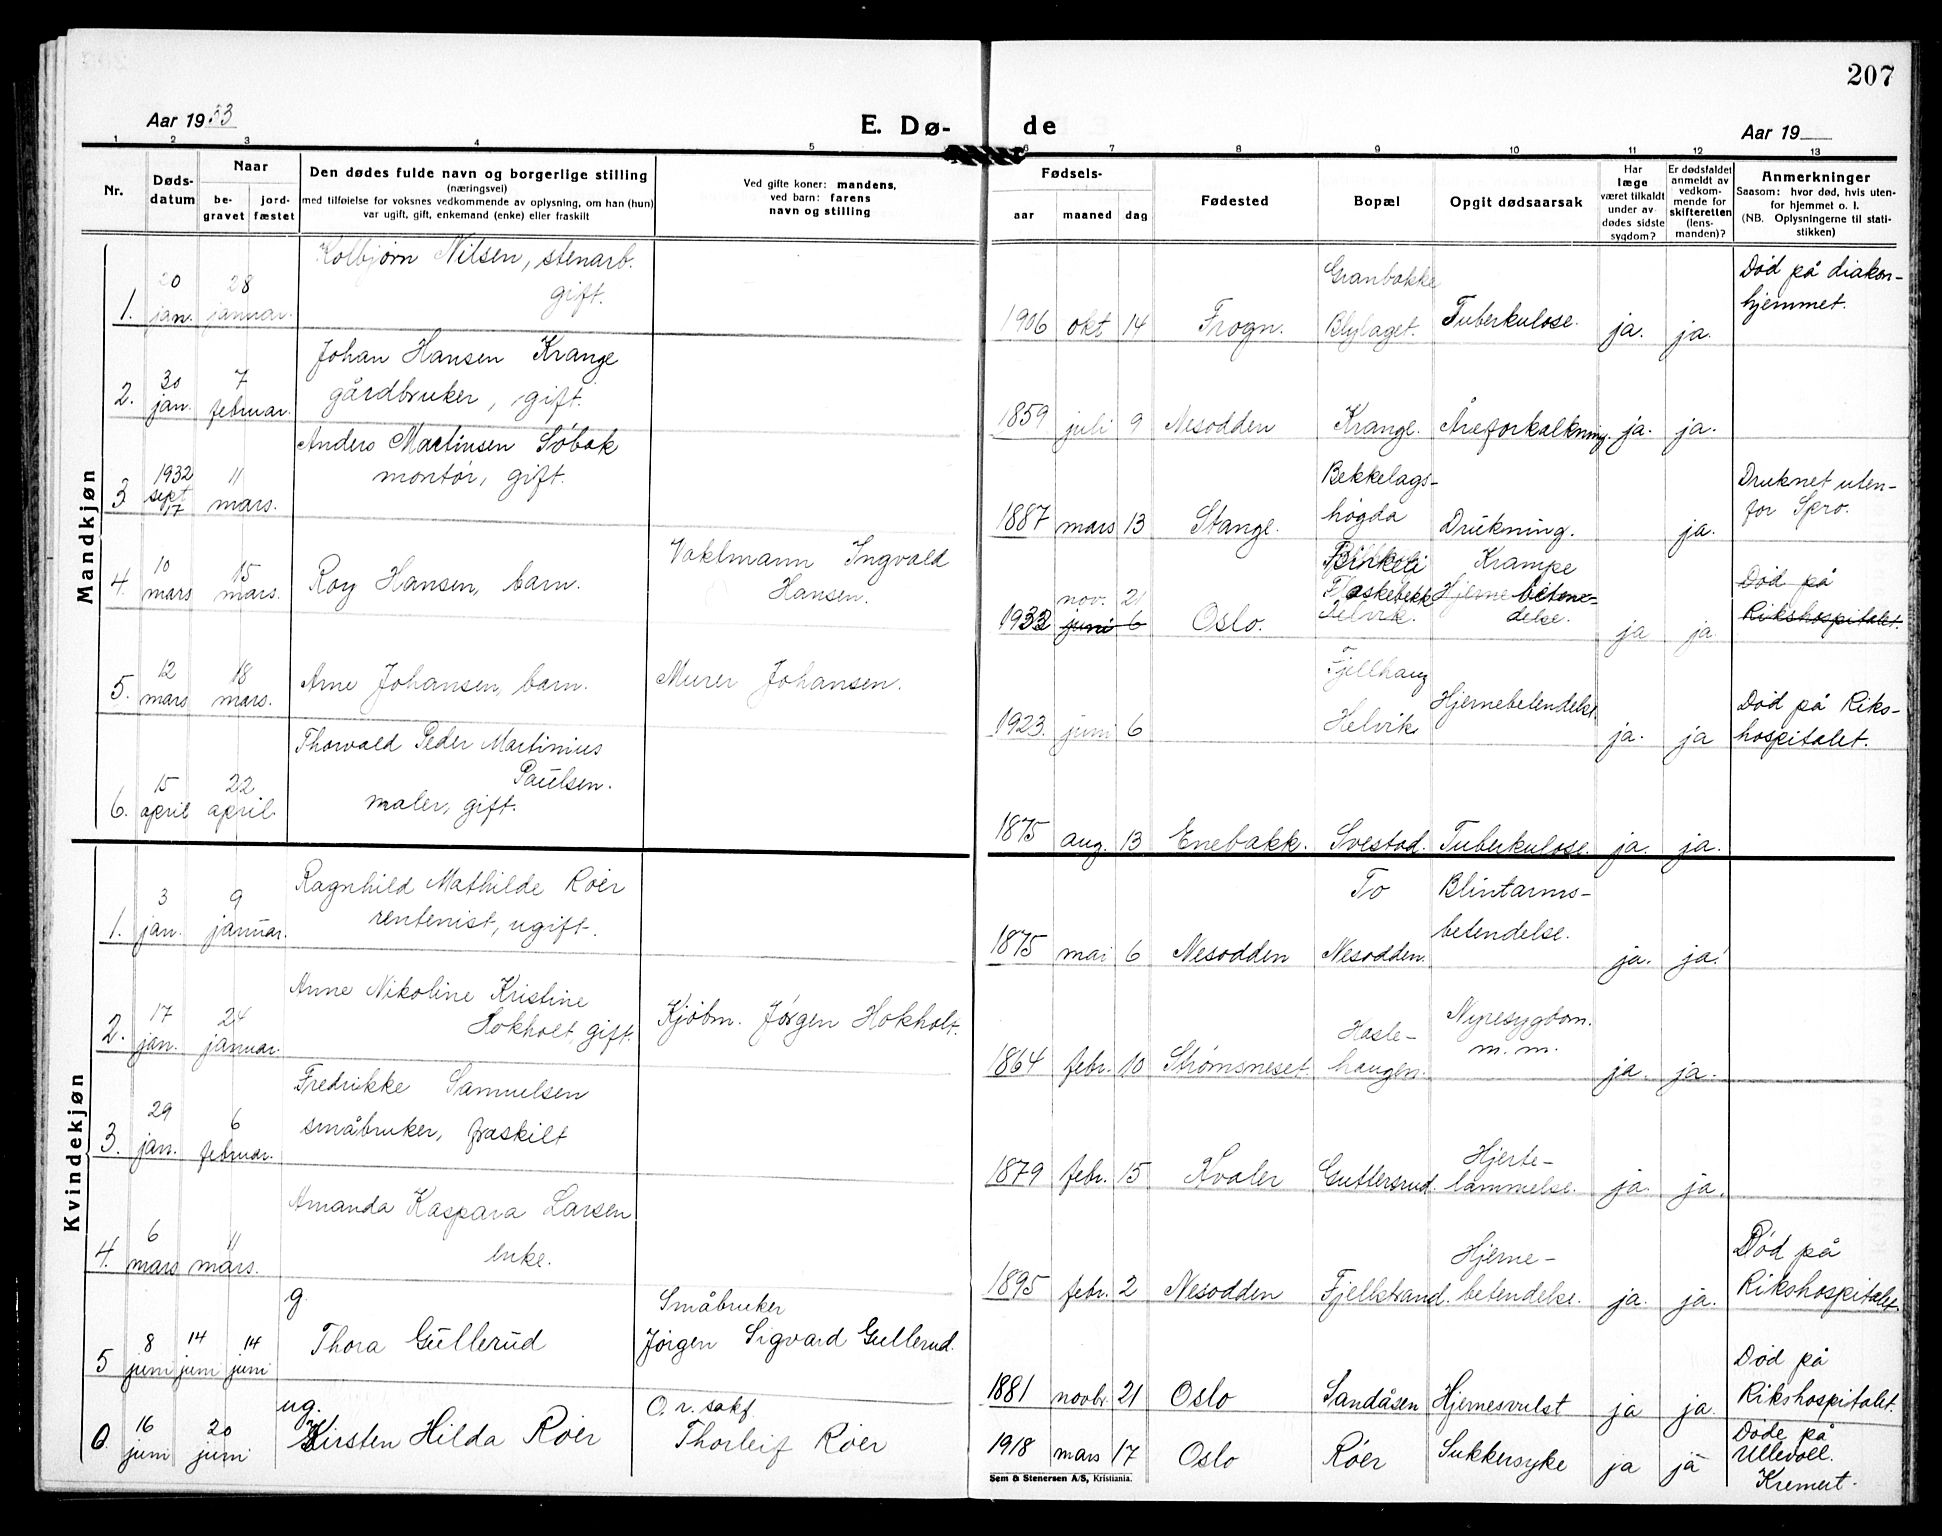 207
Aar 1933
E. Dø-
de
Aar 19
1 2 3 4 5 6 7 8 9 10 11 12 13
Nr.
Døds-
datum
Naar
be-
gravet
jord-
fæstet
Den dødes fulde navn og borgerlige stilling
(næringsvei)
med tilføielse for voksnes vedkommende av oplysning, om han (hun)
var ugift, gift, enkemand (enke) eller fraskilt
Ved gifte koner: mandens,
ved barn: farens
navn og stilling
Fødsels-
aar
maaned
dag
Fødested
Bopæl
Opgit dødsaarsak
Har
læge
været tilkaldt
under av
dødes sidste
sygdom?
Er dødsfaldet
anmeldt av
vedkom-
mende for
skifteretten
(lens-
manden)?
Anmerkninger
Saasom: hvor død, hvis uten-
for hjemmet o. l.
(NB. Oplysningerne til stati-
stikken)
Mandkjøn
1. 20 jan. 28 januar. Kolbjørn Nilsen, stenarb.
gift.
1906 okt 14 Frogn. Granbakke
Blylaget. Tuberkulose. ja. ja. Død på diakon-
hjemmet.
2. 30 jan. 7 februar. Johan Hansen Krange
gårdbruker, gift.
1859 juli 9 Nesodden Krange. Åreforkalkning. ja. ja.
3 1932 sept 17 11 mars. Anders Martinsen Søbak
montør, gift.
1887 mars 13 Stange. Bekkelags-
høgda Drukning. ja. Druknet uten-
for Spro.
4. 10 mars 15 mars. Roy Hansen, barn. Ingvald
Hansen.
1932 nov. 21 juni 6 Oslo. Flaskebekk
Helvik. Krampe
Hjernebetende-
delse. ja ja Død på
Rikshospitalet.
5. 12 mars 18 mars. Arne Johansen, barn. Murer Johansen.
1923. juni 6 Fjellhaug
Helvik Hjernebetendelse ja. ja Død på Riks-
hospitalet.
6. 15 april 22 april. Thorvald Peder Martinius
Paulsen.
maler, gift.
1875 aug. 13 Enebakk. Svestad. Tuberkulose. ja. ja.
Kvindekjøn
1. 3 jan. 9 januar. Ragnhild Mathilde Røer
rentenist, ugift.
1875 mai 6 Nesodden To
Nesodden. Blintarms-
betendelse. ja. ja.
2. 17 jan. 24 januar. Anne Nikoline Kristine
Hokholt, gift. Kjøbm. Jørgen Hokholt.
1864 febr. 10 Strømsneset. Hasle-
haugen. Nyresygdom.
m. m. ja. ja.
3. 29 jan. 6 februar. Fredrikke Samuelsen
småbruker, fraskilt
1879 febr. 15 Kvaler Guttersrud. Hjerte-
lammelse. ja. ja.
4. 6 mars 11 mars. Amanda Kaspara Larsen
enke.
1895 febr. 2 Nesodden Fjellstrand. Hjerne-
betendelse. ja. ja. Død på
Rikshospitalet.
5 8 juni 14 juni 14 juni g.
Thora Gullerud Småbruker
Jørgen Sigvard Gullerud.
1881 novbr. 21 Oslo Sandåsen Hjernesvulst ja ja. Død på
Rikshospitalet.
6. 16 juni 20 juni ug.
Kirsten Hilda Røer O. r. sakf
Thorleif Røer
1918 mars 17 Oslo Røer Sukkersyke ja ja Døde på
Ullevoll.
Kremert.
Sem & Stenersen A/S, Kristiania.